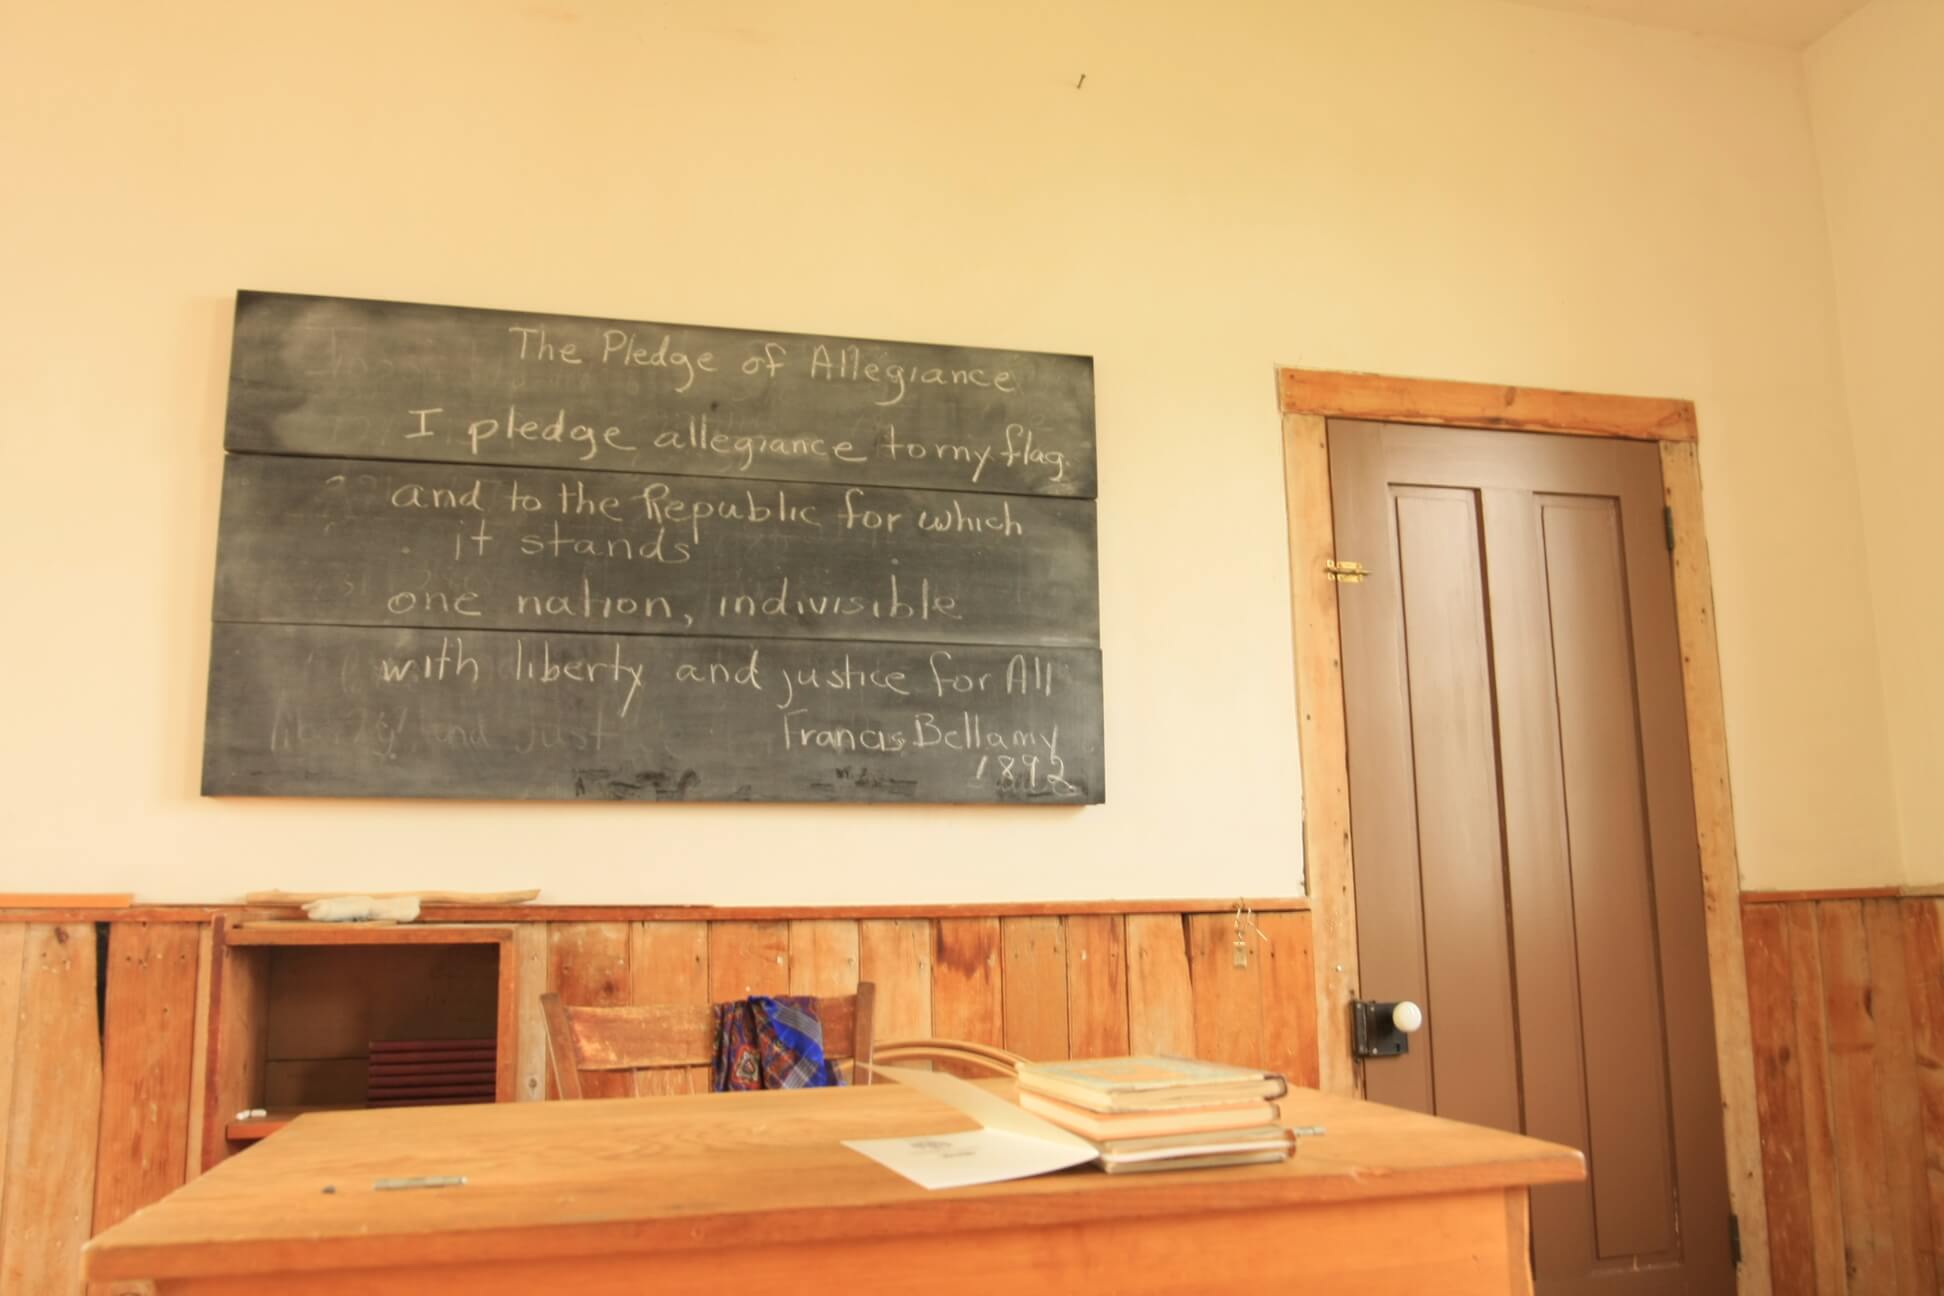 The Pledge of Allegiance
I pledge allegiance to my flag.
and to the Republic for which
it stands
one nation, indivisible
with liberty and justice for All
Francis Bellamy
1892